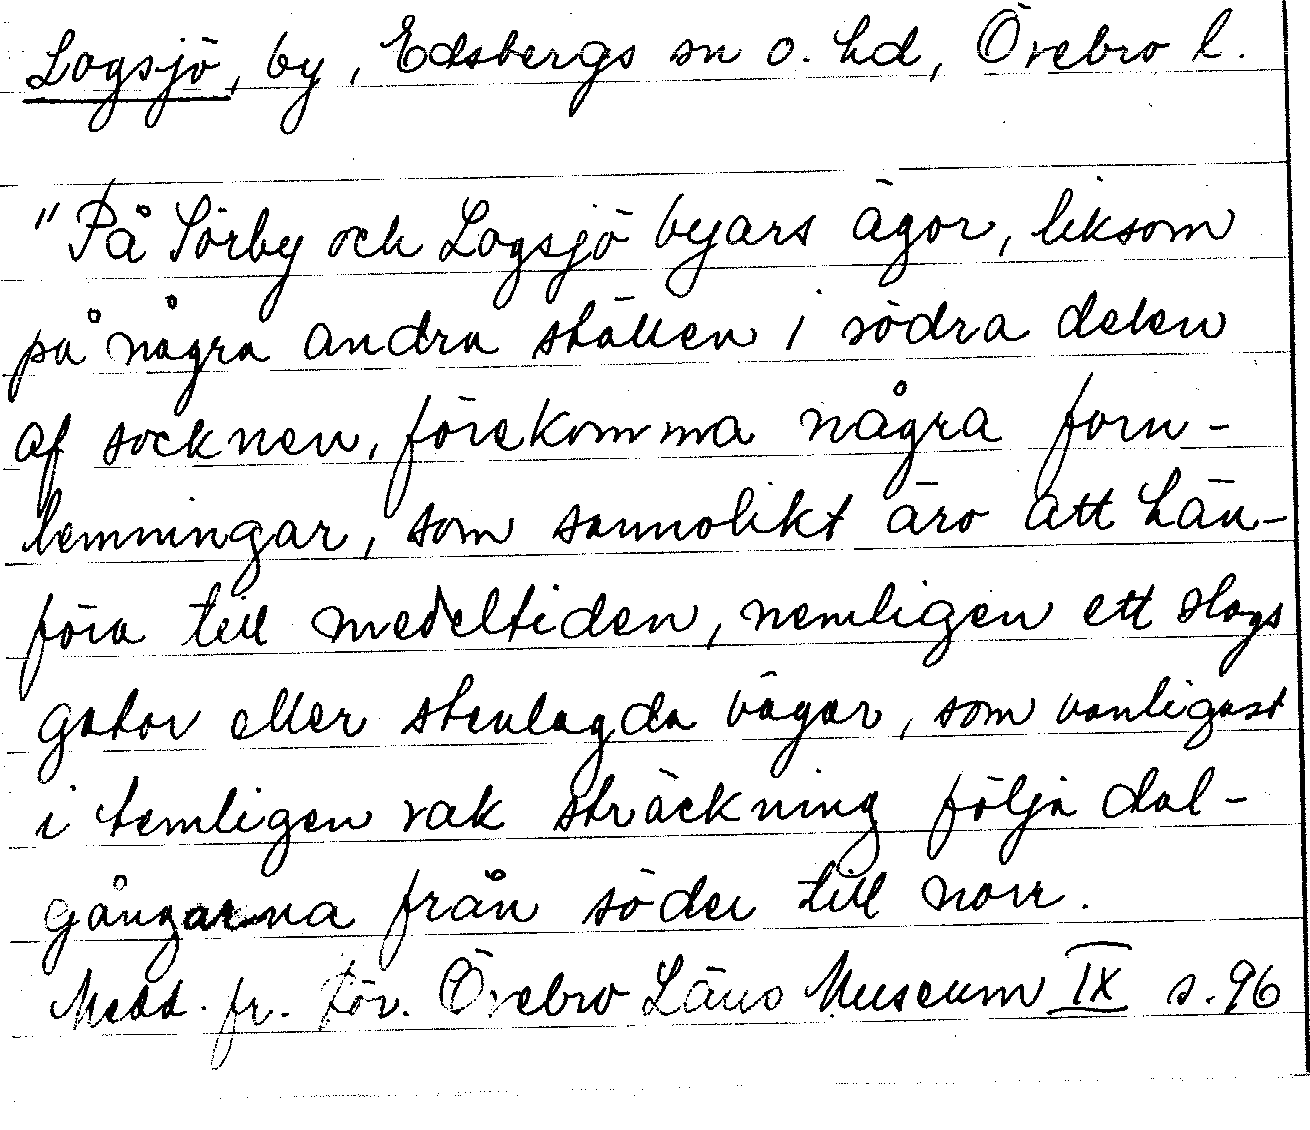 Logsjö, by, Edsbergs sn o. hd, Örebro l.
"På Sörby och Logsjö byars ägor, liksom
på några andra ställen i södra delen
af socknen, förekomma några forn-
lemningar, som sannolikt äro att hän-
föra till medeltiden, nemligen ett slags
gator eller stenlagda vägar, som vanligast
i temligen rak sträckning följa dal-
gångarna från söder till norr.
Medd. fr. För. Örebro Läns Museum IX s. 96